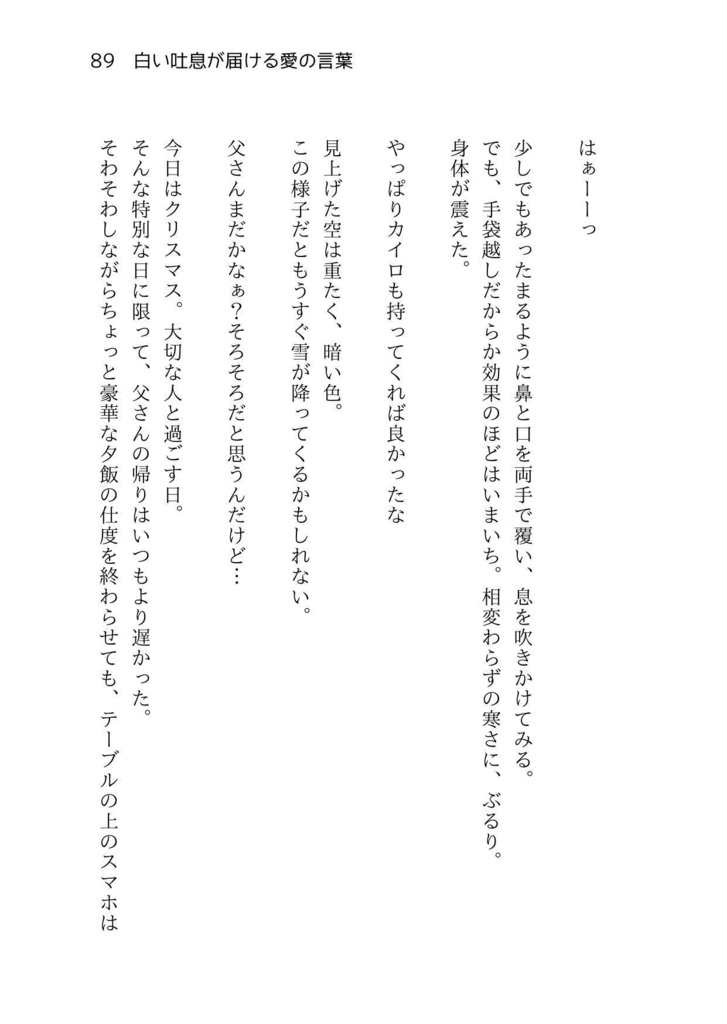 89 白い吐息が届ける愛の言葉
はぁーーっ
少しでもあったまるように鼻と口を両手で覆い、息を吹きかけてみる。
でも、手袋越しだからか効果のほどはいまいち。相変わらずの寒さに、ぶるり。
身体が震えた。
やっぱりカイロも持ってくれば良かったな
見上げた空は重たく、暗い色。
この様子だともうすぐ雪が降ってくるかもしれない。
父さんまだかなぁ？そろそろだと思うんだけど…
今日はクリスマス。大切な人と過ごす日。
そんな特別な日に限って、父さんの帰りはいつもより遅かった。
そわそわしながらちょっと豪華な夕飯の仕度を終わらせても、テーブルの上のスマホは